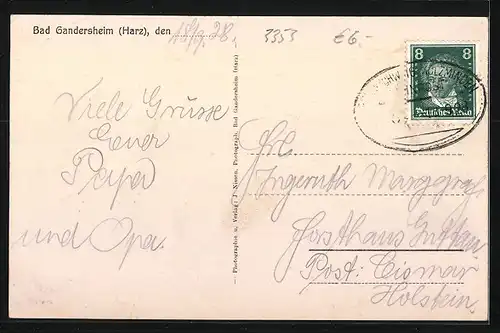 Bad Gandersheim (Harz), den 18/9.28.
3353
£6.-
8 8
Deutsches Reich
Viele Grüsse
Euer
Papa
und Opa.
Photographie u. Verlag: J Nissen, Photograph, Bad Gandersheim (Harz)
Frl.
Ingeruth Marggraf
Forsthaus
Post: Cismar
Holstein.